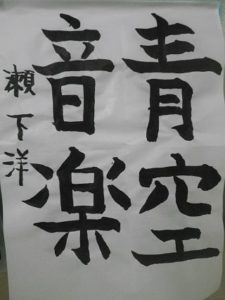 青空
音楽
瀬下洋